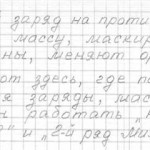 заряд на проти
массу, маскир
ны, меняют ор
от здесь, где по
я заряды, мас
ы работать „
о" и „2-й ряд Ми